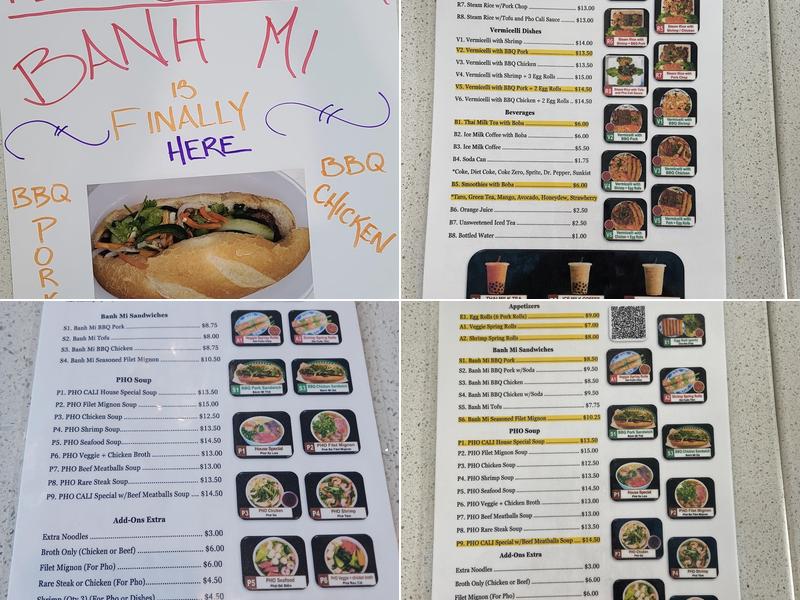 BANH MI
IS
FINALLY
HERE
BBQ
PORK
BBQ
CHICKEN
R7. Steam Rice w/Pork Chop $13.00
R8. Steam Rice w/Tofu and Pho Cali Sauce $13.00
Vermicelli Dishes
V1. Vermicelli with Shrimp $14.00
V2. Vermicelli with BBQ Pork $13.50
V3. Vermicelli with BBQ Chicken $13.50
V4. Vermicelli with Shrimp + 3 Egg Rolls $15.00
V5. Vermicelli with BBQ Pork + 2 Egg Rolls $14.50
V6. Vermicelli with BBQ Chicken + 2 Egg Rolls $14.50
Beverages
B1. Thai Milk Tea with Boba $6.00
B2. Ice Milk Coffee with Boba $6.00
B3. Ice Milk Coffee $5.50
B4. Soda Can $1.75
*Coke, Diet Coke, Coke Zero, Sprite, Dr. Pepper, Sunkist
B5. Smoothies with Boba $6.00
*Taro, Green Tea, Mango, Avocado, Honeydew, Strawberry
B6. Orange Juice $2.50
B7. Unsweetened Iced Tea $2.50
B8. Bottled Water $1.00
THAI MILK TEA
ICE MILK COFFEE
Banh Mi Sandwiches
S1. Banh Mi BBQ Pork $8.75
S2. Banh Mi Tofu $8.00
S3. Banh Mi BBQ Chicken $8.75
S4. Banh Mi Seasoned Filet Mignon $10.50
PHO Soup
P1. PHO CALI House Special Soup $13.50
P2. PHO Filet Mignon Soup $15.00
P3. PHO Chicken Soup $12.50
P4. PHO Shrimp Soup $13.50
P5. PHO Seafood Soup $14.50
P6. PHO Veggie + Chicken Broth $13.00
P7. PHO Beef Meatballs Soup $13.00
P8. PHO Rare Steak Soup $13.50
P9. PHO CALI Special w/Beef Meatballs Soup $14.50
Add-Ons Extra
Extra Noodles $3.00
Broth Only (Chicken or Beef) $6.00
Filet Mignon (For Pho) $6.00
Rare Steak or Chicken (For Pho) $4.50
Shrimp (Qty 3) (For Pho or Dishes) $4.50
BBQ Pork Sandwich
BBQ Chicken Sandwich
P1 House Special
P2 PHO Filet Mignon
P3 PHO Chicken
P4 PHO Shrimp
P5 PHO Seafood
Appetizers
E1. Egg Rolls (6 Pork Rolls) $9.00
A1. Veggie Spring Rolls $7.00
A2. Shrimp Spring Rolls $8.00
Banh Mi Sandwiches
S1. Banh Mi BBQ Pork $8.50
S2. Banh Mi BBQ Pork w/Soda $9.50
S3. Banh Mi BBQ Chicken $8.50
S4. Banh Mi BBQ Chicken w/Soda $9.50
S5. Banh Mi Tofu $7.75
S6. Banh Mi Seasoned Filet Mignon $10.25
PHO Soup
P1. PHO CALI House Special Soup $13.50
P2. PHO Filet Mignon Soup $15.00
P3. PHO Chicken Soup $12.50
P4. PHO Shrimp Soup $13.50
P5. PHO Seafood Soup $14.50
P6. PHO Veggie + Chicken Broth $13.00
P7. PHO Beef Meatballs Soup $13.00
P8. PHO Rare Steak Soup $13.50
P9. PHO CALI Special w/Beef Meatballs Soup $14.50
Add-Ons Extra
Extra Noodles $3.00
Broth Only (Chicken or Beef) $6.00
Filet Mignon (For Pho) $6.00